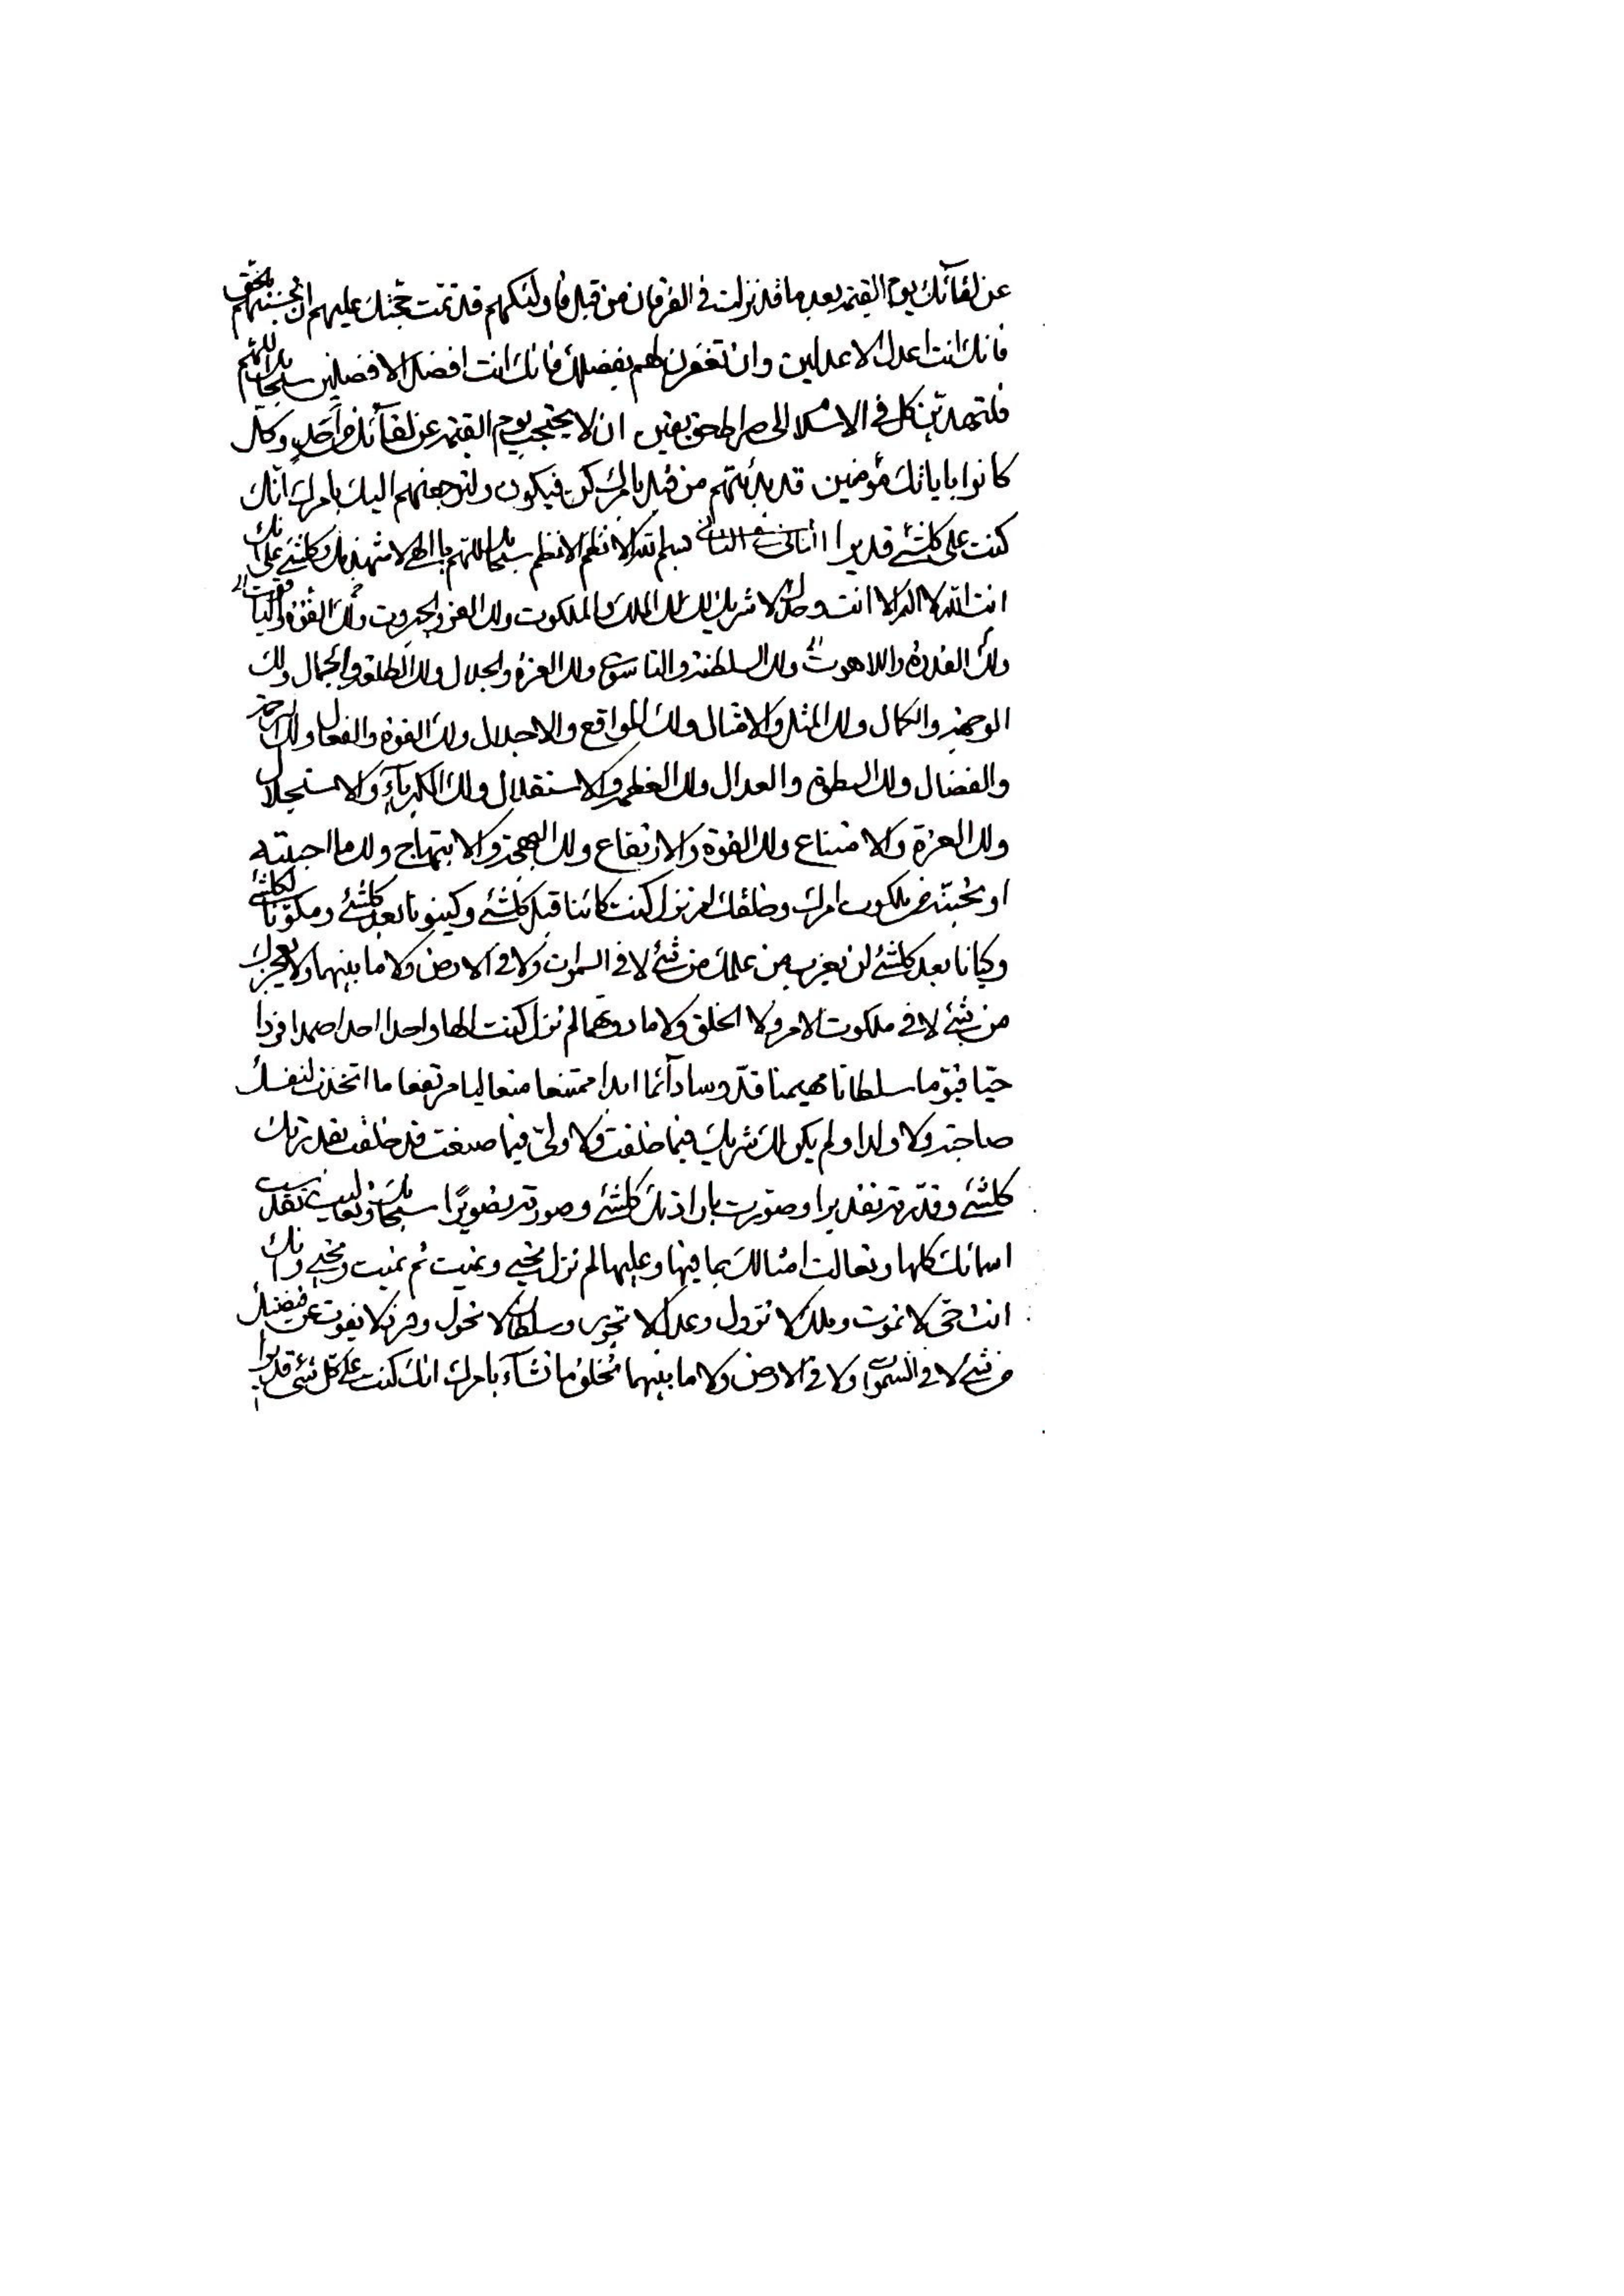 عن لقآئك يوم القيمة بعد ما قد نزلت في الفرقان من قبل فاولئكهم قد تمت حجتك عليهم ان بالحق
فانك انت اعدل الاعدلين وان تغفرن لهم بفضلك فانك انت افضل الافضلين سبحانك اللهم
فلتهدين كل في الاسلام الى صراط حق يقين ان لا يحتجب يوم القيمة عن لقآئك من احد وكل
كانوا باياتك مؤمنين قد بدئتهم من قبل بامرك كن فيكون ولترجعنهم اليك بامرك انك
كنت على كلشئ قديرا الثاني في الثاني بسم الله الانظم الانظم سبحانك اللهم يا الهي لاشهدنك وكلشئ على انك
انت الله لا اله الا انت وحدك لا شريك لك لك الملك والملكوت ولك العز والجبروت ولك القوة والياقوت
ولك القدرة واللاهوت ولك السلطنة والناسوت ولك العزة والجلال ولك الطلعة والجمال ولك
الوجهة والكمال ولك المثل والامثال ولك المواقع والاجلال ولك القوة والفعال ولك الرحمة
والفضال ولك السطوة والعدال ولك العظمة والاستقلال ولك الكبرياء والاستجلال
ولك العزة والامتناع ولك القوة والارتفاع ولك البهجة والابتهاج ولك ما احببته
او تحبنه من ملكوت امرك وخلقك لم تزل كنت كائنا قبل كلشئ وكينونا بعد كلشئ ومكونا لكلشئ
وكيانا بعد كلشئ لن يعزب من علمك من شئ لا في السموات ولا في الارض ولا ما بينهما ولا يعجزك
من شئ لا في ملكوت الامر ولا الخلق ولا ما دونهما لم تزل كنت الها واحدا احدا صمدا فردا
حيا قيوما سلطانا مهيمنا قدوسا دآئما ابدا ممتنعا متعاليا مرتفعا ما اتخذت لنفسك
صاحبة ولا ولدا ولم يكن لك شريك فيما خلقت ولا ولي فيما صنعت قد خلقت بقدرتك
كلشئ وقدرته تقديرا وصورت بارادتك كلشئ وصورته تصويرا سبحانك وتعاليت تقدست
اسمائك كلها وتعالت امثالك بما فيها وعليها لم تزل تحيي وتميت ثم تميت وتحيي وانك
انت حي لا تموت وملك لا تزول وعدل لا تجور وسلطان لا تحول وفرد لا يفوت عن قبضتك
من شئ لا في السموات ولا في الارض ولا ما بينهما تخلق ما تشآء بامرك انك كنت على كل شئ قديرا